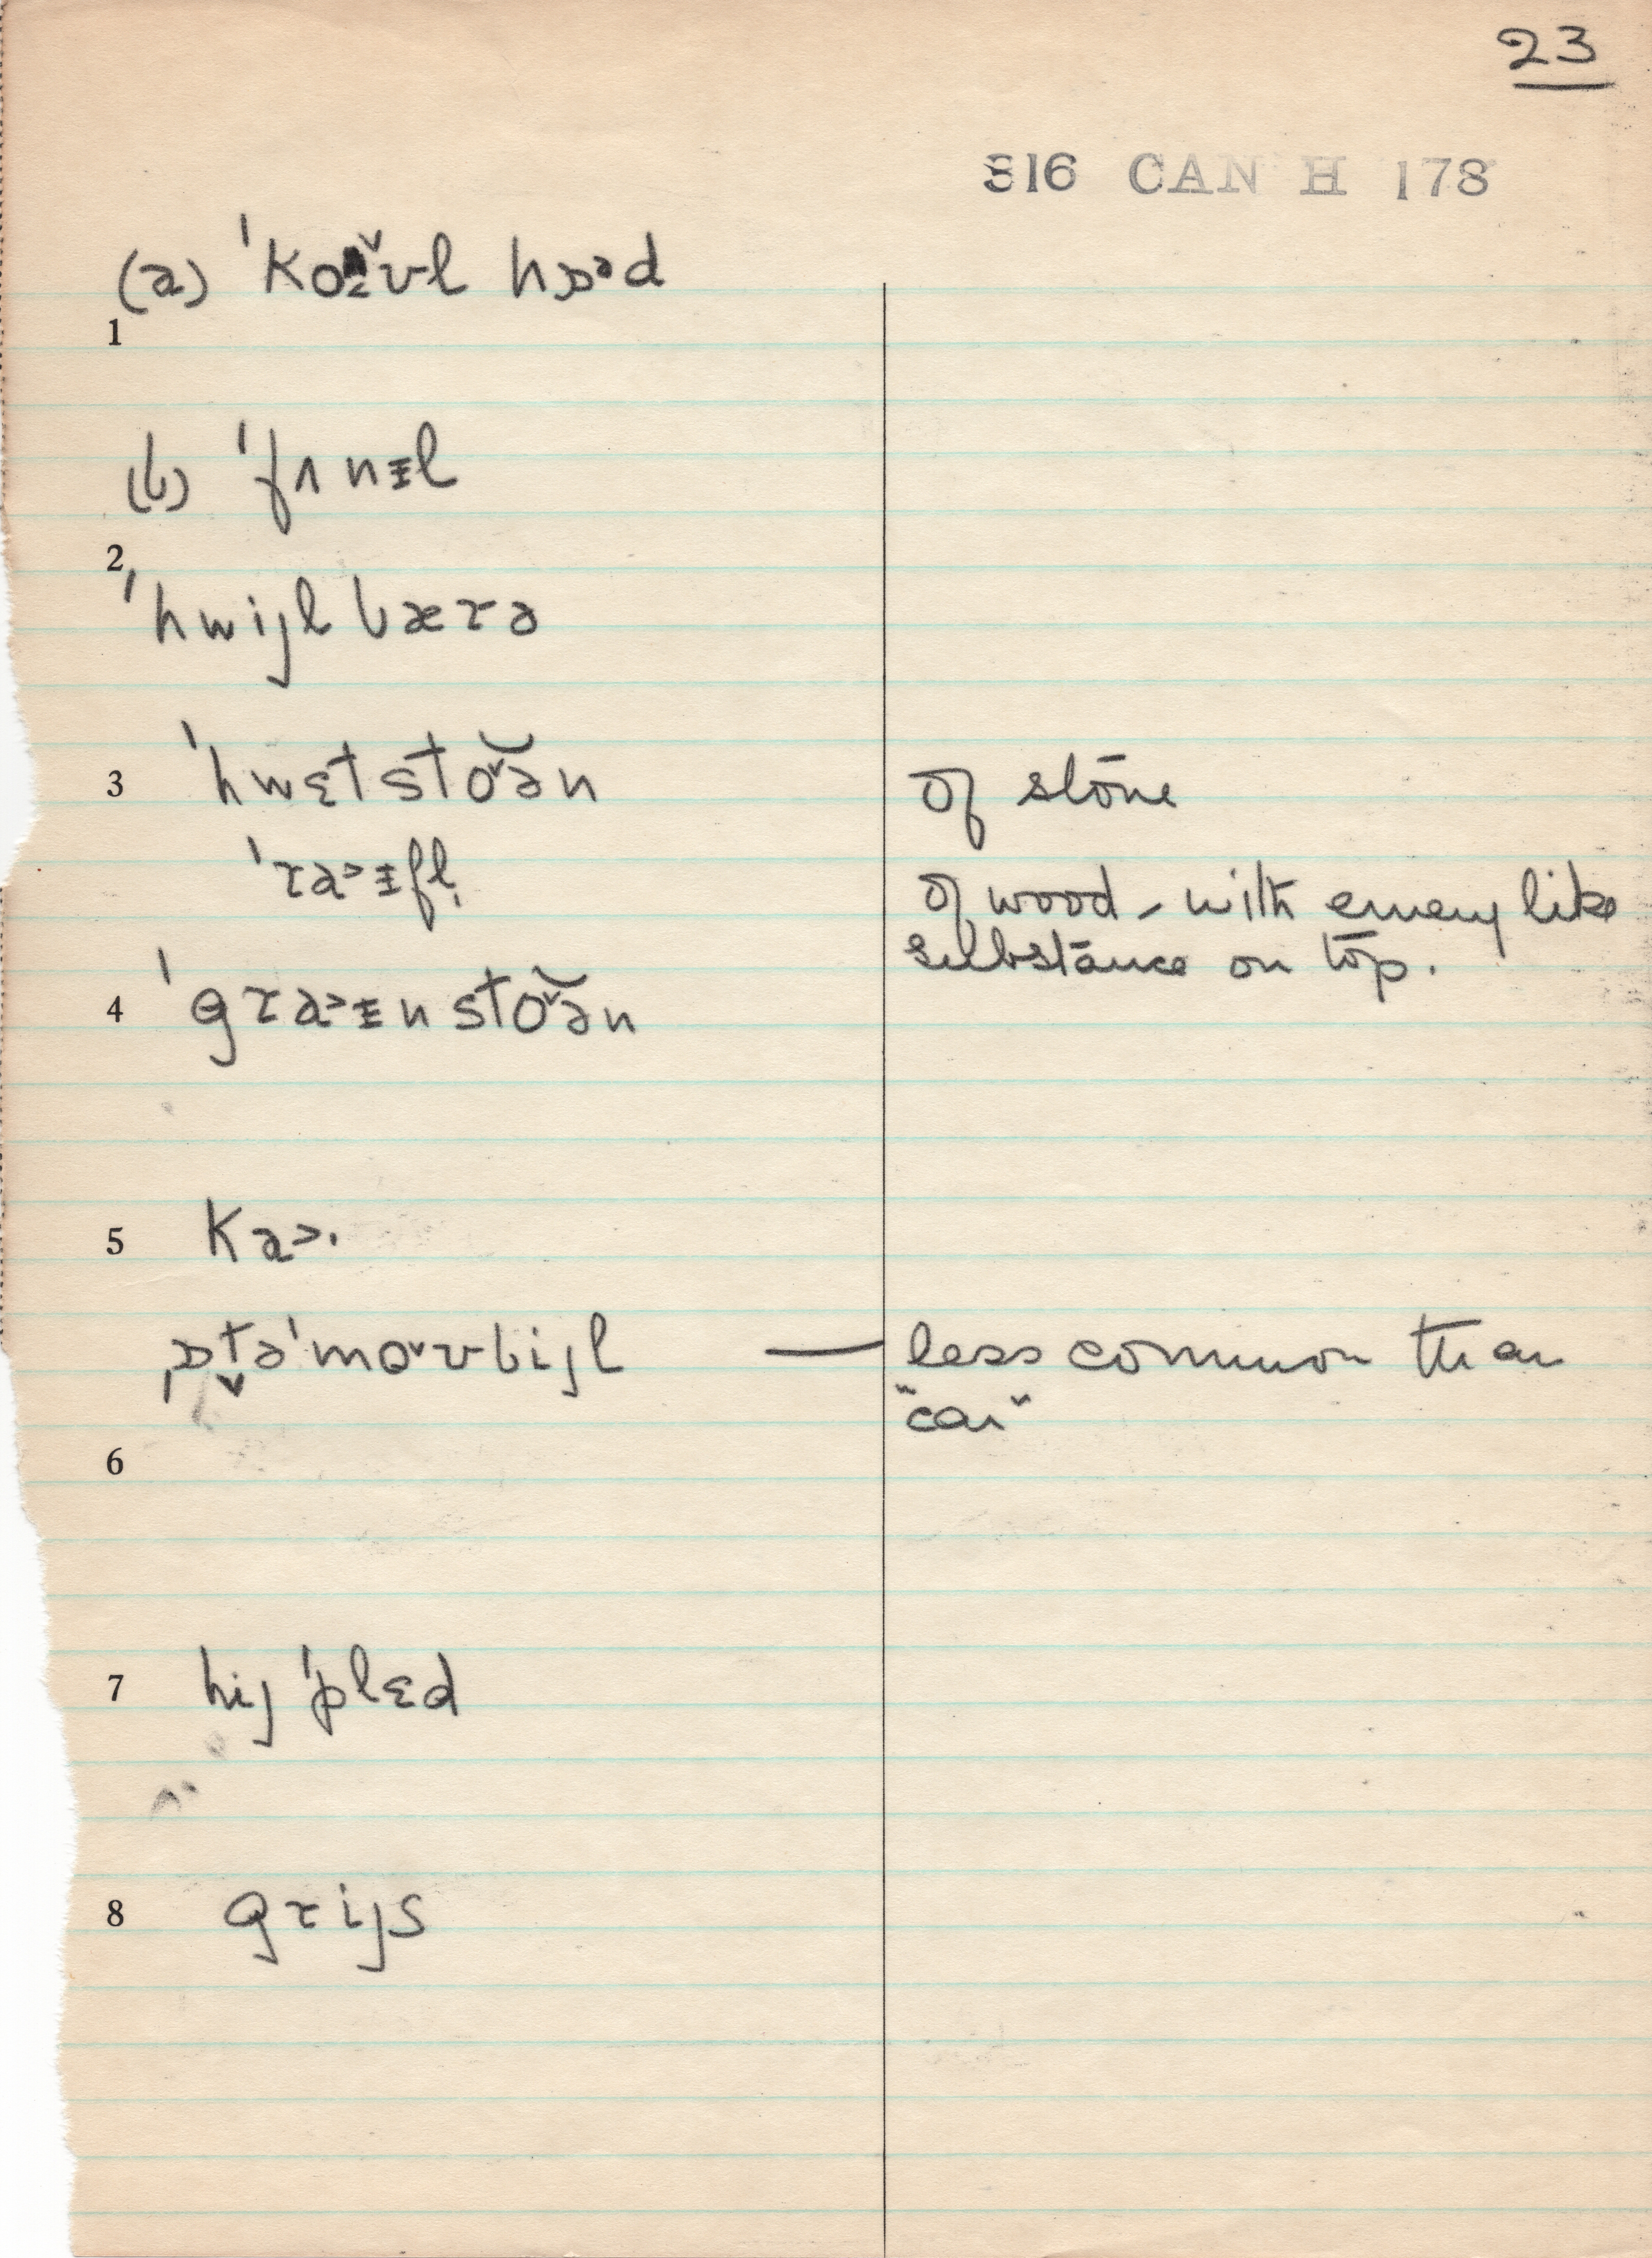 23
S16 CAN H 178
(a) ˈkoˇʊl hɒəd
1
(b) ˈfʌnɨl
2
ˈhwijl bærə
3 ˈhwɛtstoˇə̆n of stone
ˈra˃ɨfl̩ of wood - with emery like
substance on top.
4 ˈgra˃ɨnstoˇə̆n
5 ka˃·
ˌɒt̬əˈmoˇʊbijl — less common than
"car"
6
7 hij ˈplɛd
8 grijs